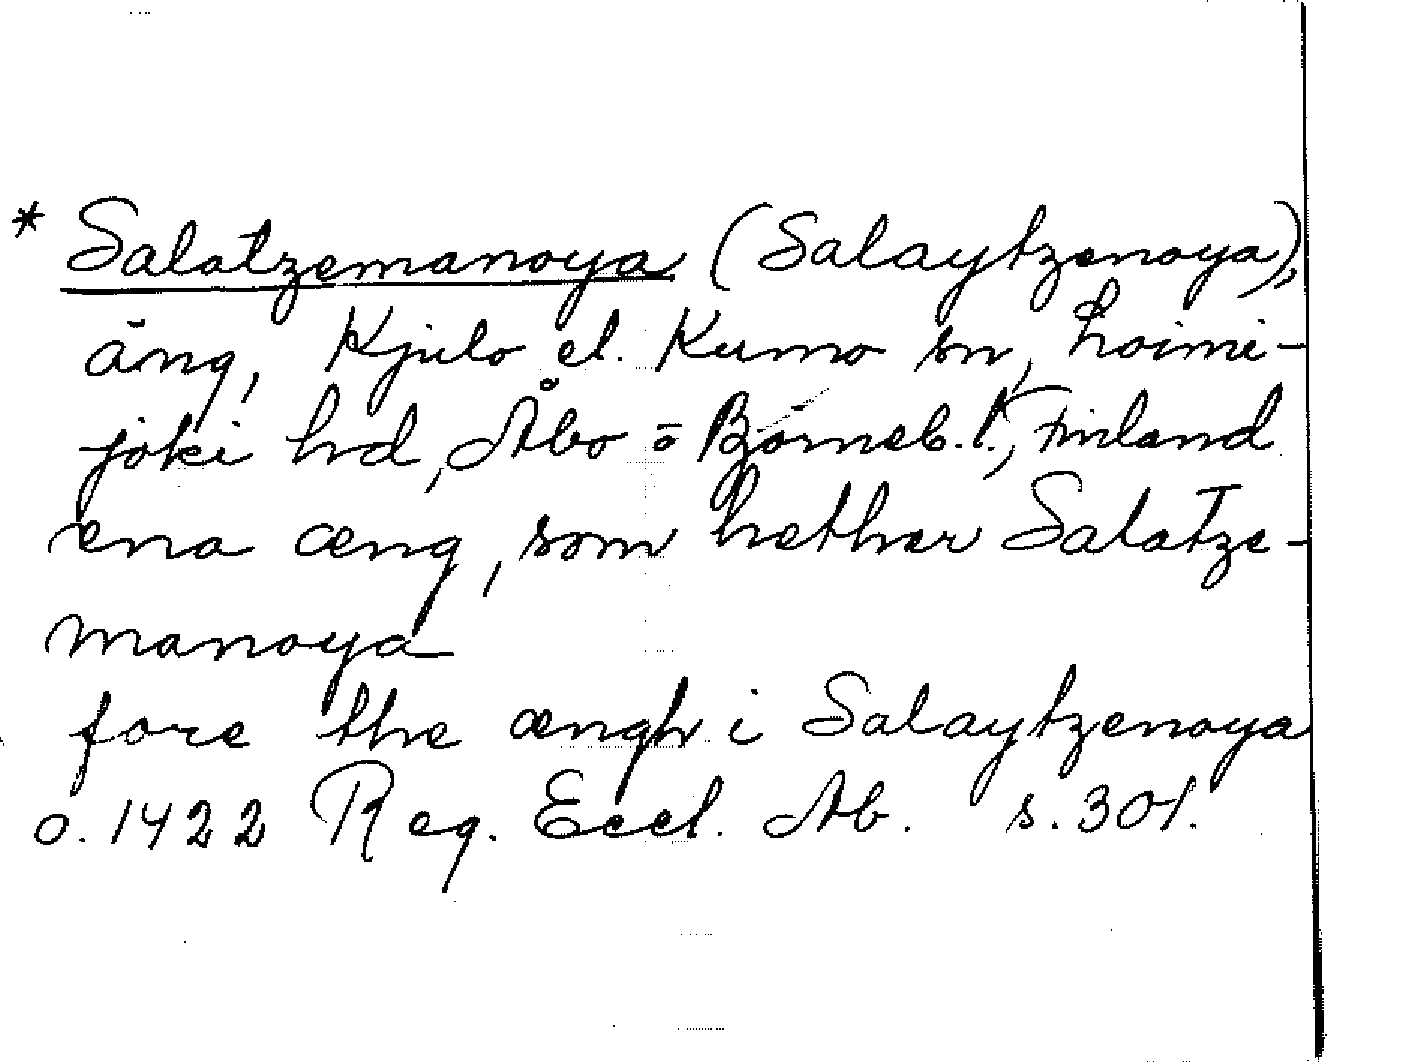 * Salatzemanoya (Salaytzenoya),
äng, Kjulo el. Kumo sn, Loimi-
joki hd, Åbo o Börneb. l., Finland
ena æng, som hether Salatze-
manoya
fore the ængh i Salaytzenoya
o. 1422 Reg. Eccl. Ab. s. 301.